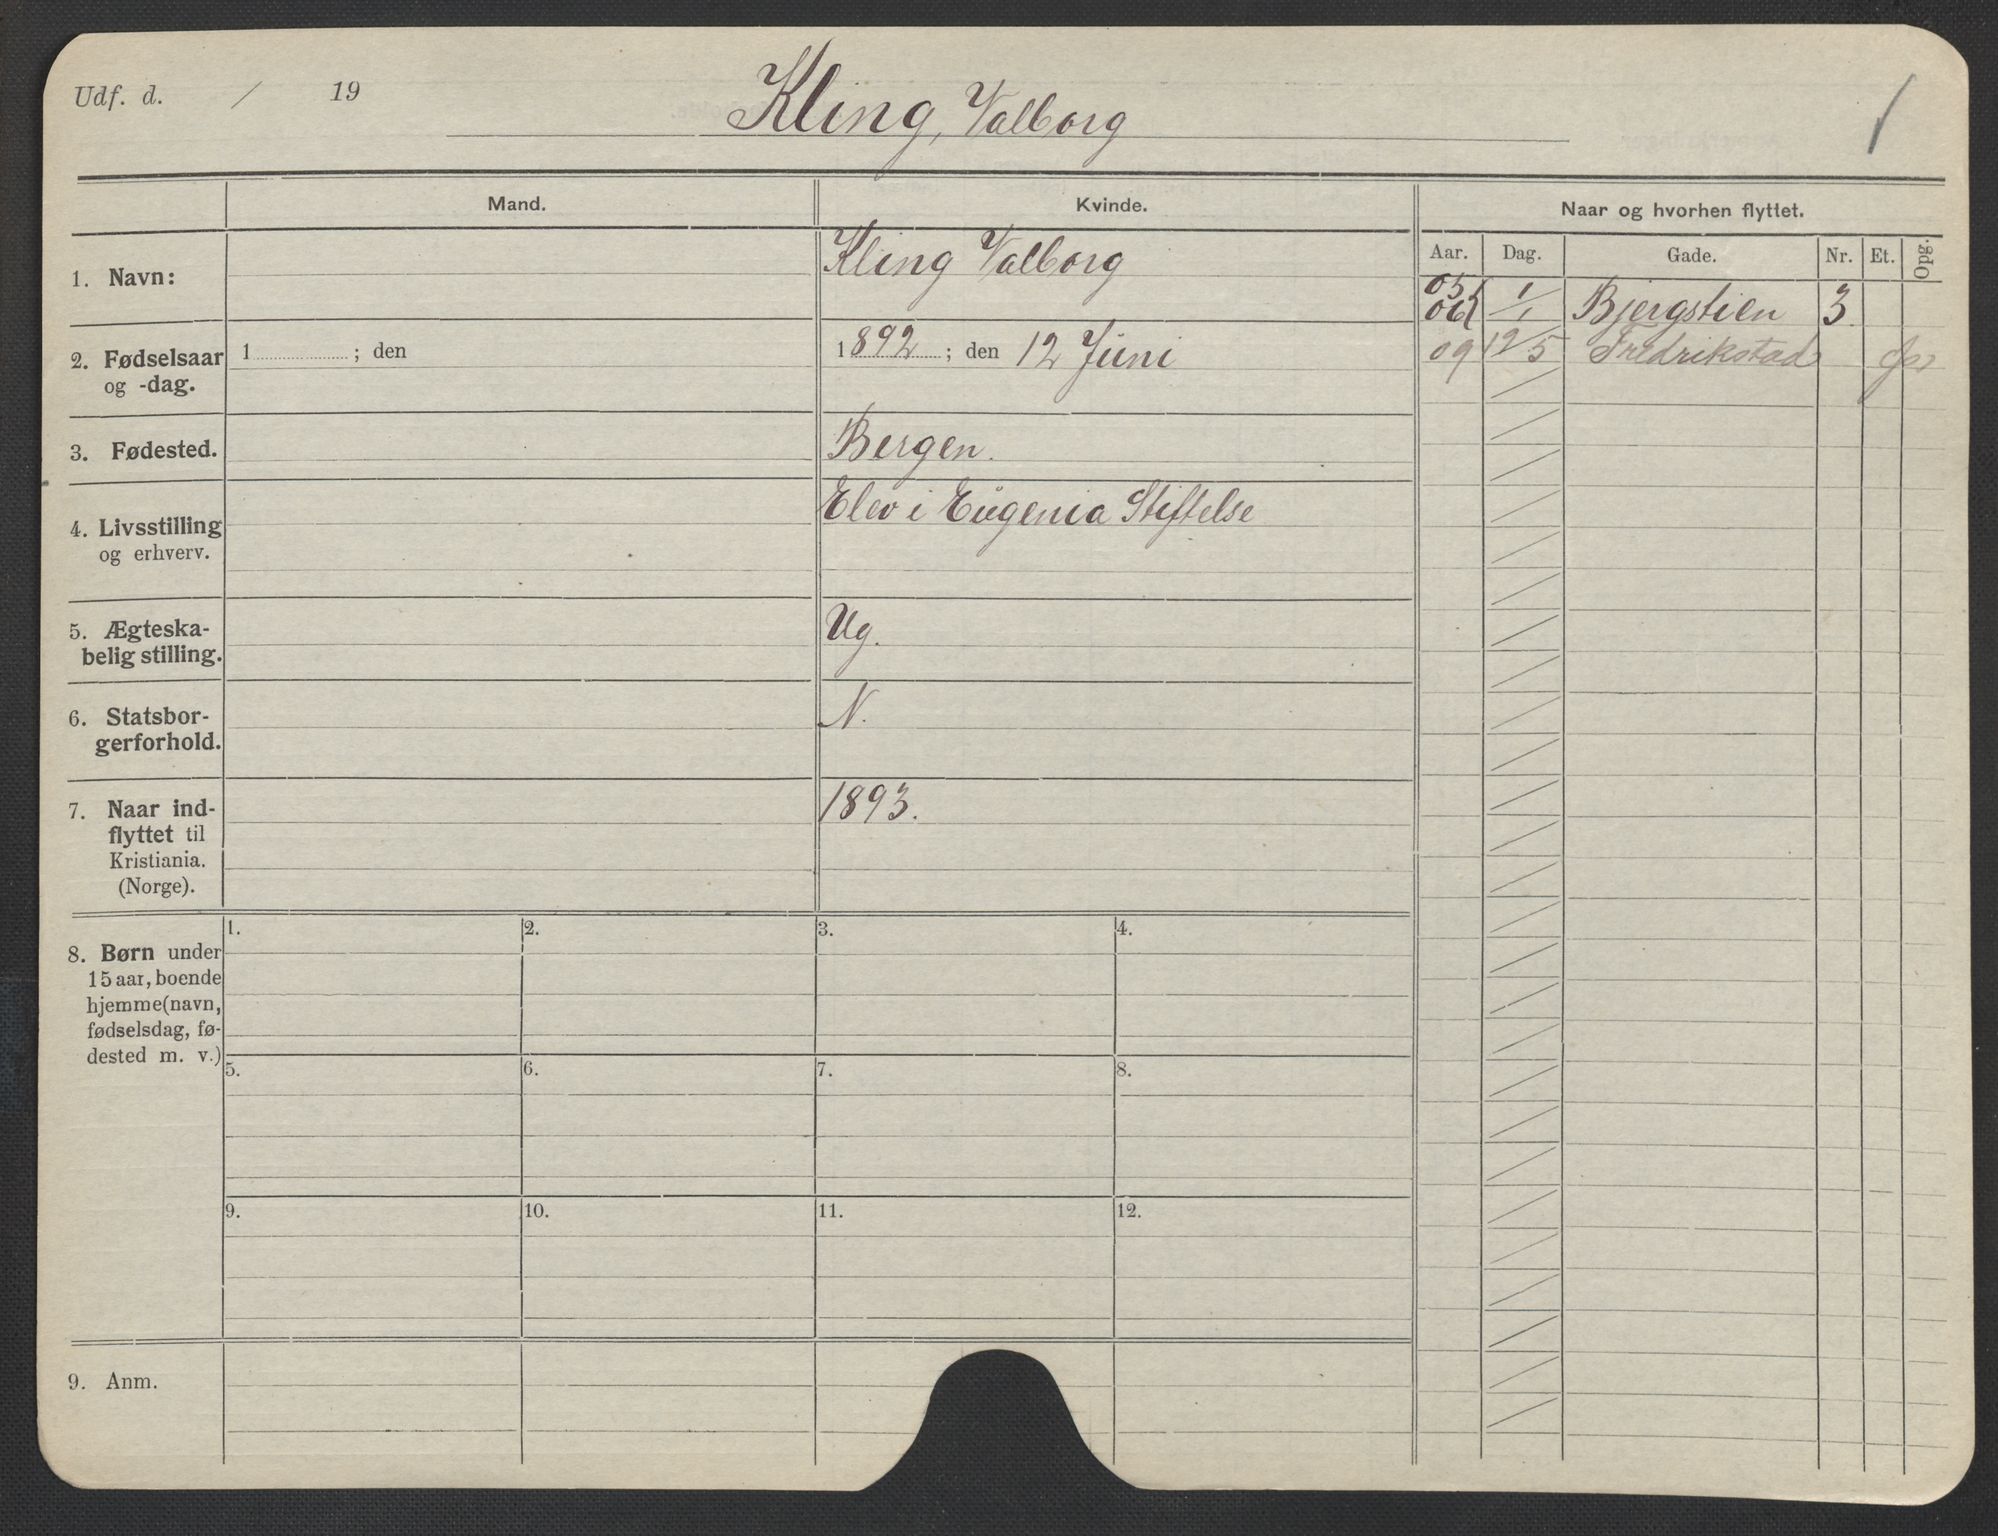 Udf. d. / 19
Kling, Valborg
Mand.
Kvinde.
Naar og hvorhen flyttet.
Aar. Dag. Gade. Nr. Et. Opg.
1. Navn:
Kling Valborg
05
06 1/1 Bjergstien 3
09 12/5 Fredrikstad
2. Fødselsaar
og -dag.
1 ; den
1892 ; den 12 Juni
3. Fødested.
Bergen.
4. Livsstilling
og erhverv.
Elev i Eugenia Stiftelse
5. Ægteska-
belig stilling.
Ug.
6. Statsbor-
gerforhold.
N.
7. Naar ind-
flyttet til
Kristiania.
(Norge).
1893.
8. Børn under
15 aar, boende
hjemme (navn,
fødselsdag, fø-
dested m. v.)
1. 2. 3. 4.
5. 6. 7. 8.
9. 10. 11. 12.
9. Anm.